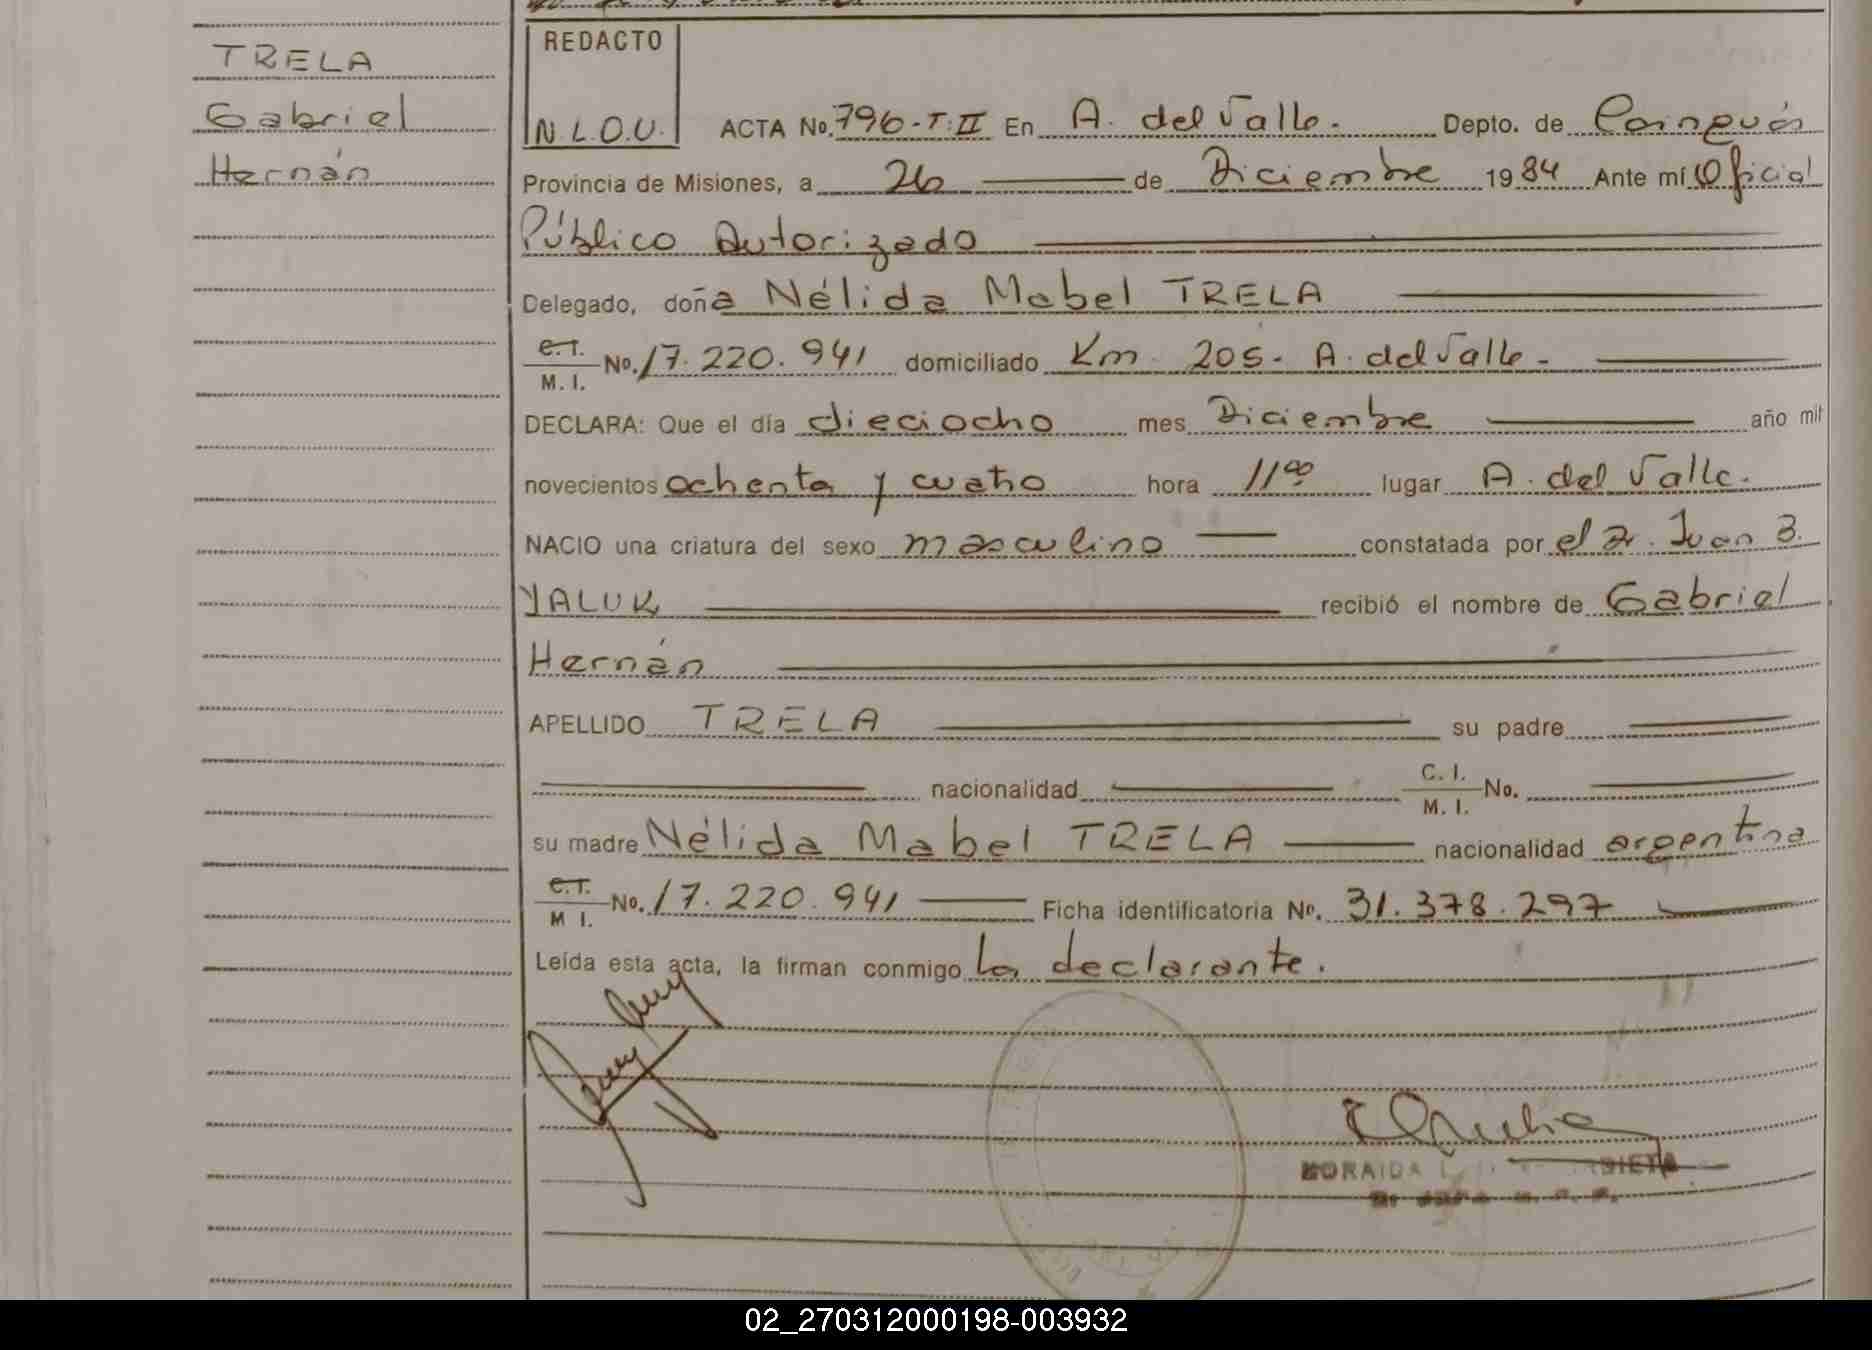 TRELA
Gabriel
Hernán
REDACTO
N.L.O.U.
ACTA No. 796-T:II En A. del Valle. Depto. de Cainguás
Provincia de Misiones, a 26 de Diciembre 1984 Ante mí Oficial
Público Autorizado
Delegado, doña Nélida Mabel TRELA
C.I. M.I. No. 17.220.941 domiciliado Km 205- A. del Valle-
DECLARA: Que el día dieciocho mes Diciembre año mil
novecientos ochenta y cuatro hora 11 00 lugar A. del Valle.
NACIO una criatura del sexo masculino constatada por el Dr. Juan B.
YALUK recibió el nombre de Gabriel
Hernán
APELLIDO TRELA su padre
nacionalidad C.I. M.I. No.
su madre Nélida Mabel TRELA nacionalidad argentina
C.I. M I. No. 17.220.941 Ficha identificatoria No. 31.378.297
Leída esta acta, la firman conmigo la declarante.
02_270312000198-003932